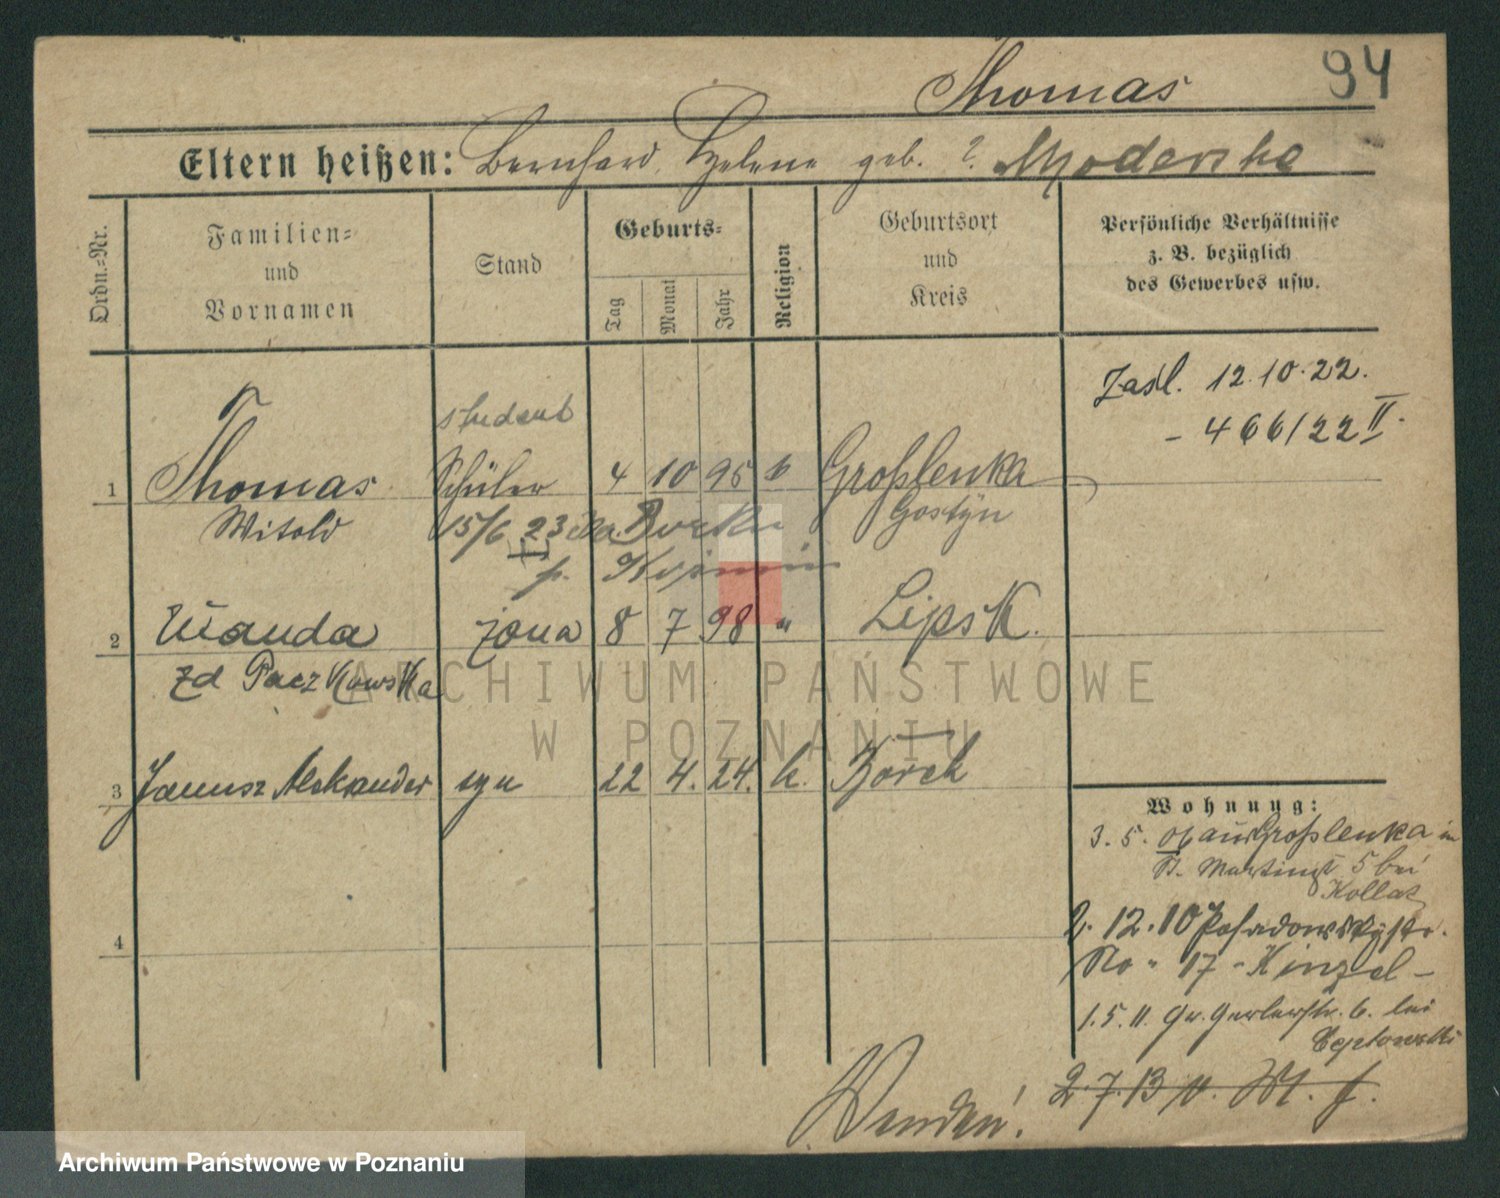 Thomas
94
Eltern heißen: Bernhard, Helene geb. ? Moderska
Ordn.-Nr.
Familien- und Vornamen
Stand
Geburts-
Tag
Monat
Jahr
Religion
Geburtsort und Kreis
Persönliche Verhältnisse
z. B. bezüglich
des Gewerbes usw.
Zasl. 12.10.22.
- 466/22 II.
student
1 Thomas Schüler 4 10 95 k Großlenka
Witold Gostyn
15/6 23 Borku
p. Koźmin
2 Wanda żona 8 7 98 " Lipsk.
zd Paczkowska
3 Janusz Aleksander syn 22 4. 24. k. Borek
4
Wohnung:
3. 5. 06 aus Großlenka in
St. Martinstr 5 bei
Kollat
2. 12. 10 Posadowskystr.
No 17 - Kinzel -
1. 5. 11. Gr. Gerberstr. 6. bei
Ceptowski
2. 7. 13 v. W. f.
Wenden!
ARCHIWUM PAŃSTWOWE
W POZNANIU
Archiwum Państwowe w Poznaniu